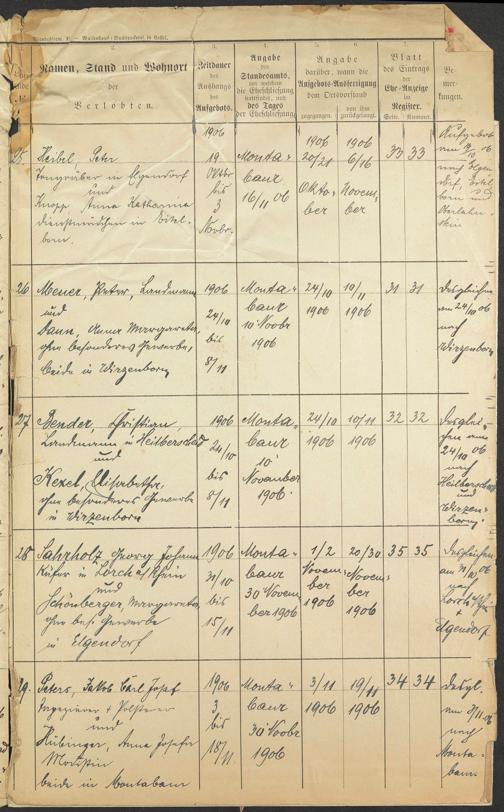 Namen, Stand und Wohnort
der
Verlobten.
Zeitdauer
des
Aushangs
des
Aufgebots.
Angabe
des
Standesamts,
vor welchem
die Eheschließung
stattfindet, und
des Tages
der Eheschließung.
Angabe
darüber, wann die
Aufgebots-Ausfertigung
dem Ortsvorstand
zugegangen.
von ihm
zurückgelangt.
Blatt
des Eintrags
der
Ehe-Anzeige
im
Register.
Seite. Nummer.
Be-
mer-
kungen.
25
Heibel, Peter
Tongräber in Elgendorf
und
Knopp Anna Katharina
Dienstmädchen in Eitel-
born.
1906
19
Oktbr
bis
3
Novbr.
Monta-
baur
16/11 06
1906
20/21
Okto-
ber
1906
6/16
Novem-
ber
33 33
Aufgebot
nach Elgen-
dorf, Eitel-
born und
26
Meuer, Peter, Landmann
und
Dann, Anna Margareta,
ohne besonderes Gewerbe,
beide in Wirzenborn
1906
24/10
bis
8/11
Monta-
baur
10 Novbr
1906
24/10
1906
10/11
1906
31 31
desgleichen
am 24/10 06
nach
Wirzenborn
27
Bender, Christian,
Landmann in Heilberscheid
und
Kexel, Elisabetha,
ohne besonderes Gewerbe
in Wirzenborn
1906
24/10
bis
8/11
Monta-
baur
10
November
1906.
24/10
1906
10/11
1906
32 32
desglei-
chen am
24/10 06
nach
Heilberscheid
und
Wirzen-
born.
28
Sahrholz Georg Johann
Küfer in Lorch a/Rhein
und
Schönberger, Margareta
ohne bes. Gewerbe
in Elgendorf
1906
31/10
bis
15/11
Monta-
baur
30 Novem-
ber 1906
1/2
Novem-
ber
1906
20/30
Novem-
ber
1906
35 35
desgleichen
nach
Elgendorf
29.
Peters, Jakob Carl Josef
Tapezierer & Polsterer
und
Hübinger, Anna Josefa
Modistin
beide in Montabaur
1906
3
bis
18/11
Monta-
baur
30 Novbr
1906
3/11
1906
19/11
1906
34 34
desgl.
am 3/11 06
nach
Monta-
baur